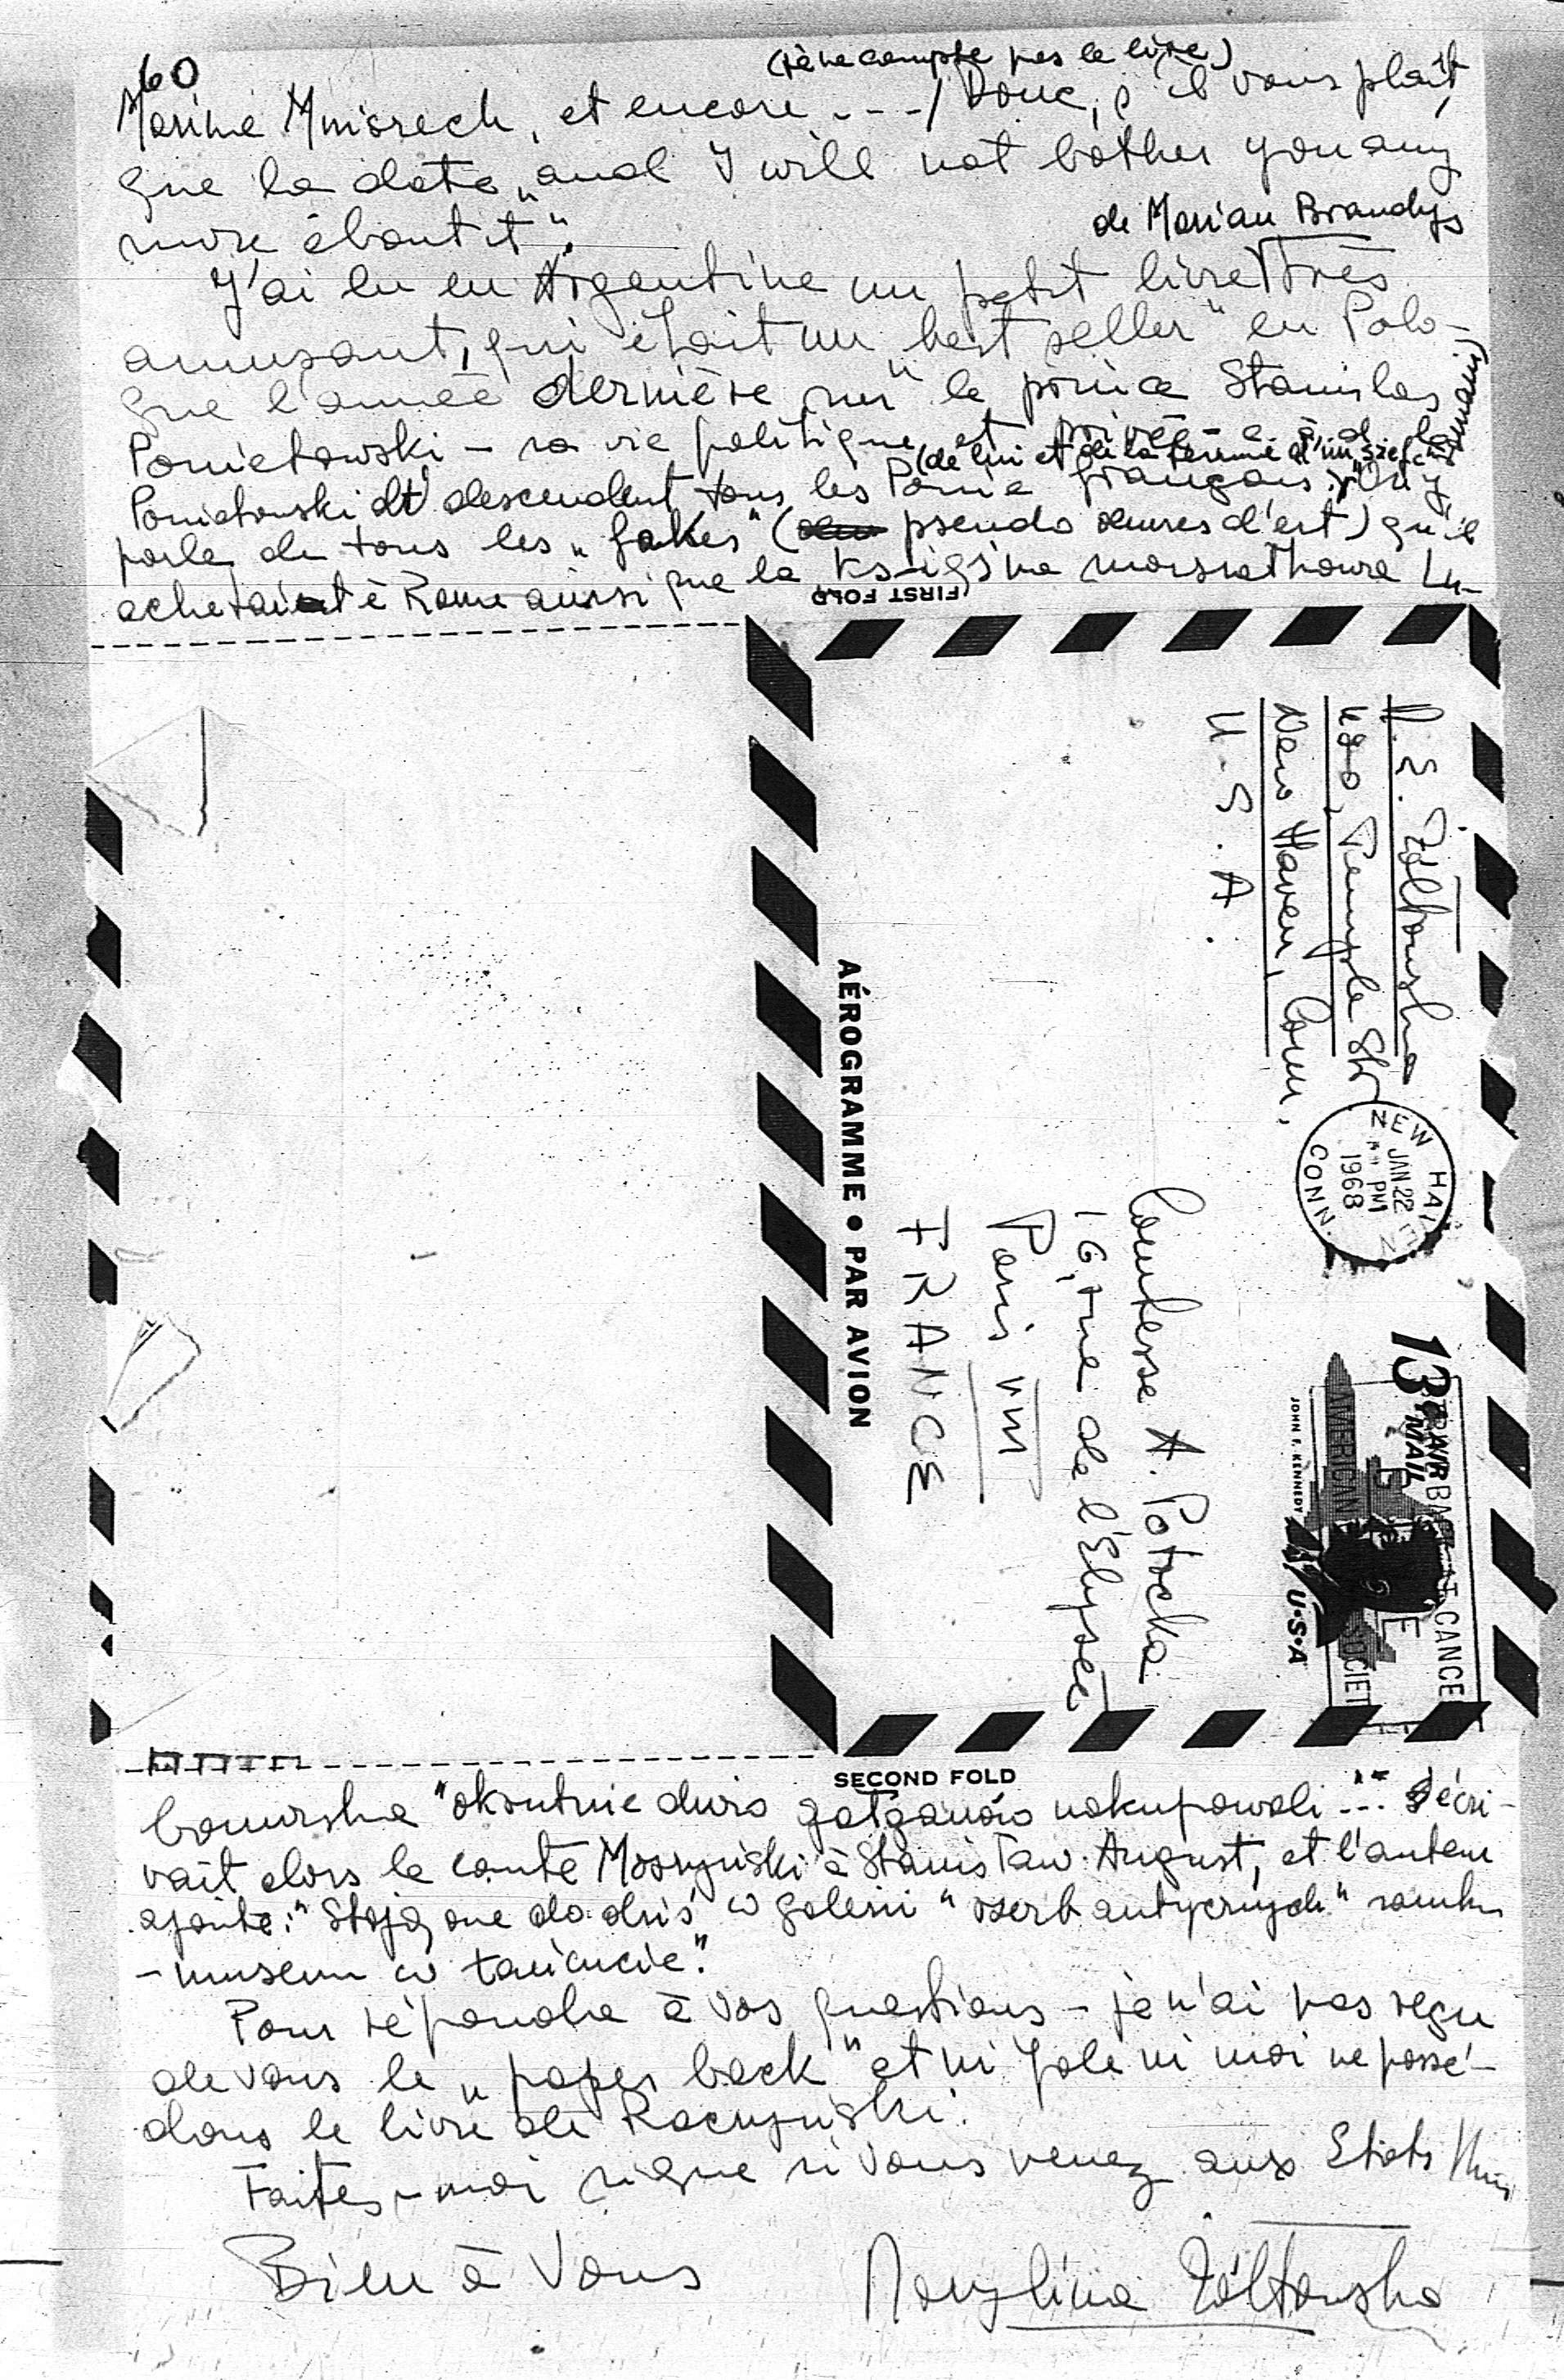 60
(je ne compte pas le lire)
Marina Mniszech, et encore ---/ Donc, s'il vous plaît,
que la date „and I will not bother you any
more about it".
de Marian Brandys
J'ai lu en Argentine un petit livre très
amusant, qui était un „best seller" en Polo-
gne l'année dernière sur le prince Stanislas
Poniatowski - sa vie politique et privée -
(de lui et de la femme d'un
Poniatowski dt descendent tous les Ponia français. On y
parle de tous les „fakes" ( pseudo œuvres d'art) qu'il
achetait à Rome ainsi que la księżna marszałkowa Lu-
(FIRST FOLD)
P. E. Żółtowska
480, Temple Str
New Haven, Conn.
U.S.A.
NEW HAVEN
JAN 22
PM
1968
CONN
13¢
AIR MAIL
JOHN F. KENNEDY
U·S·A
AMERICAN CANCER SOCIETY
Comtesse A. Potocka
16, rue de l'Elysée
Paris VIII
FRANCE
AÉROGRAMME • PAR AVION
SECOND FOLD
bomirska "okrutnie dużo gałganów nakupowali..." écri-
vait alors le comte Moszyński à Stanisław August, et l'auteur
ajoute: "Stoją one do dziś w galerii "rzeźb antycznych" zamku
- museum w Łańcucie".
Pour répondre à vos questions - je n'ai pas reçu
de vous le „paper back" et ni Jole ni moi ne possé-
dons le livre de Raczyński.
Faites-moi signe si vous venez aux Etats Unis
Bien à Vous
Marylina Żółtowska